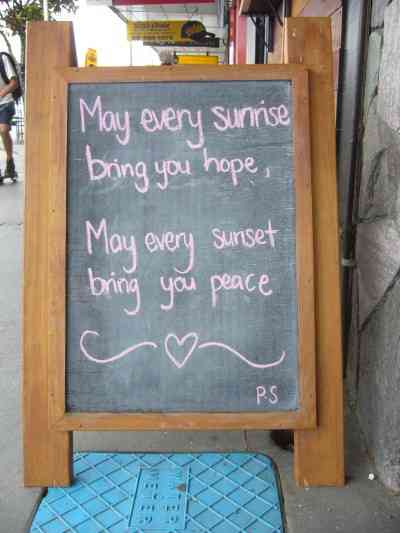 May every sunrise
bring you hope,
May every sunset
bring you peace
PS
WATER
METER